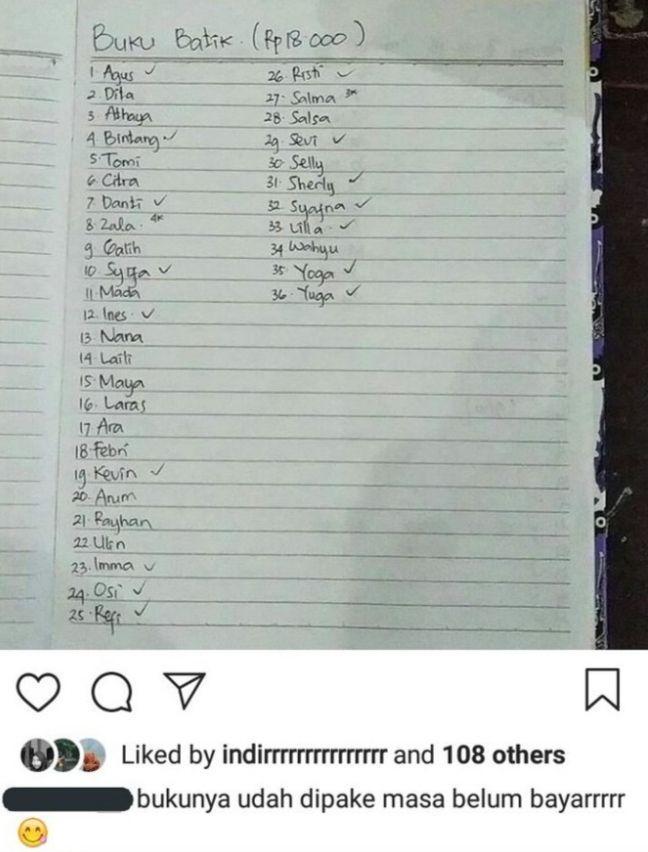 Buku Batik. (Rp18.000)
1 Agus ✓
2 Dita
3 Athaya
4 Bintang ✓
5. Tomi
6. Citra
7. Danti ✓
8. Zala. 4x
9. Galih
10. Syifa ✓
11. Mada
12. Ines. ✓
13. Nana
14. Laili
15. Maya
16. Laras
17 Ara
18. Febri
19. Kevin ✓
20. Arum
21. Rayhan
22. Ulin
23. Imma ✓
24. Osi ✓
25. Refi ✓
26. Risti ✓
27. Salma 3x
28. Salsa
29. Sevi ✓
30. Selly
31. Sherly ✓
32. Syafna ✓
33. Lilla. ✓
34 Wahyu
35. Yoga ✓
36. Yuga ✓
Liked by indirrrrrrrrrrrrrrrr and 108 others
bukunya udah dipake masa belum bayarrrrr
😋